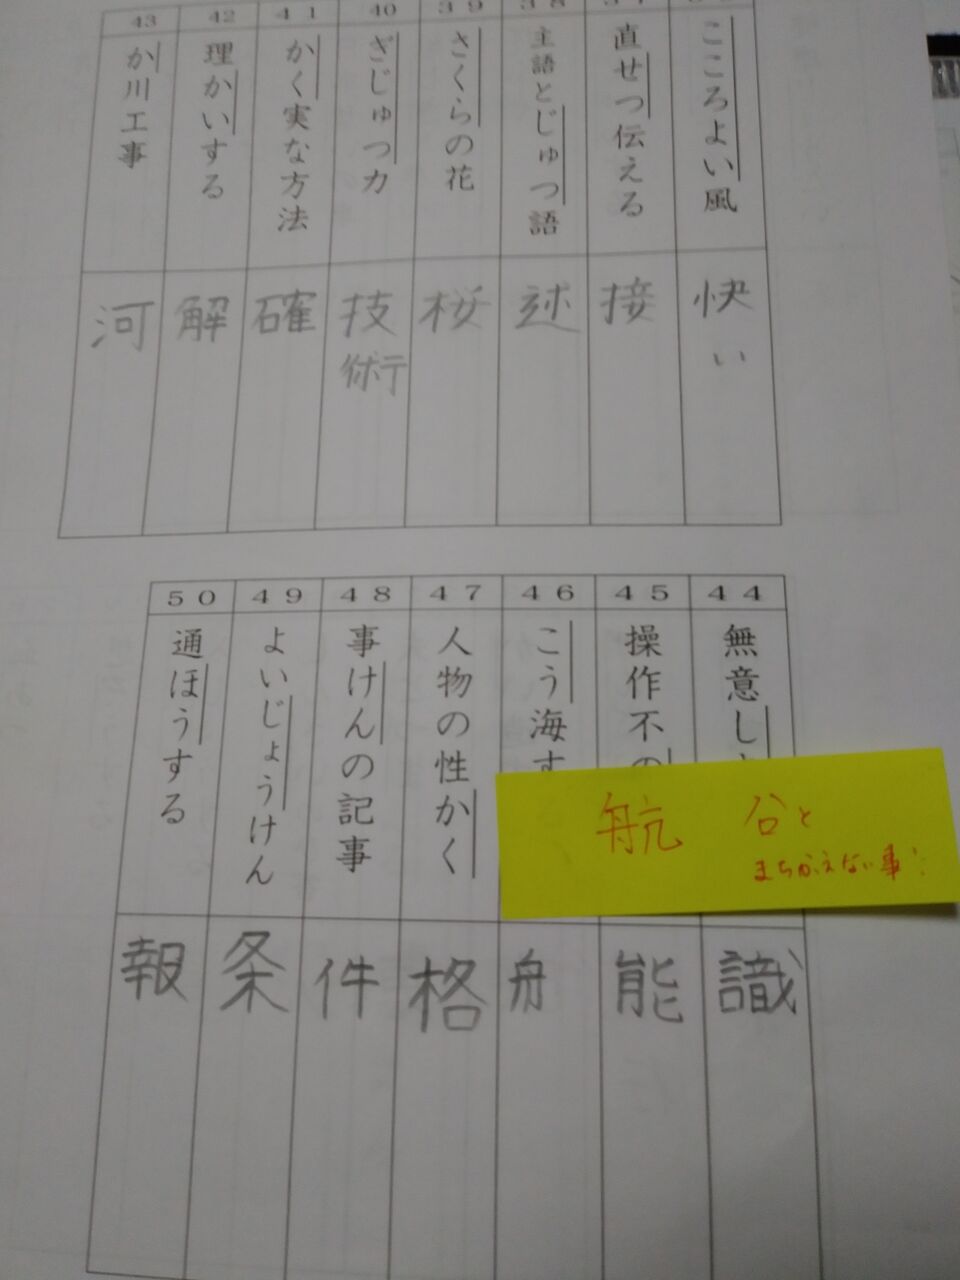 こころよい風
快い
直せつ伝える
接
主語とじゅつ語
述
39
さくらの花
桜
40
ぎじゅつ力
技術
41
かく実な方法
確
42
理かいする
解
43
か川工事
河
44
無意し
識
45
操作不の
能
46
こう海す
舟
47
人物の性かく
格
48
事けんの記事
件
49
よいじょうけん
条
50
通ほうする
報
航 谷と
まちがえない事